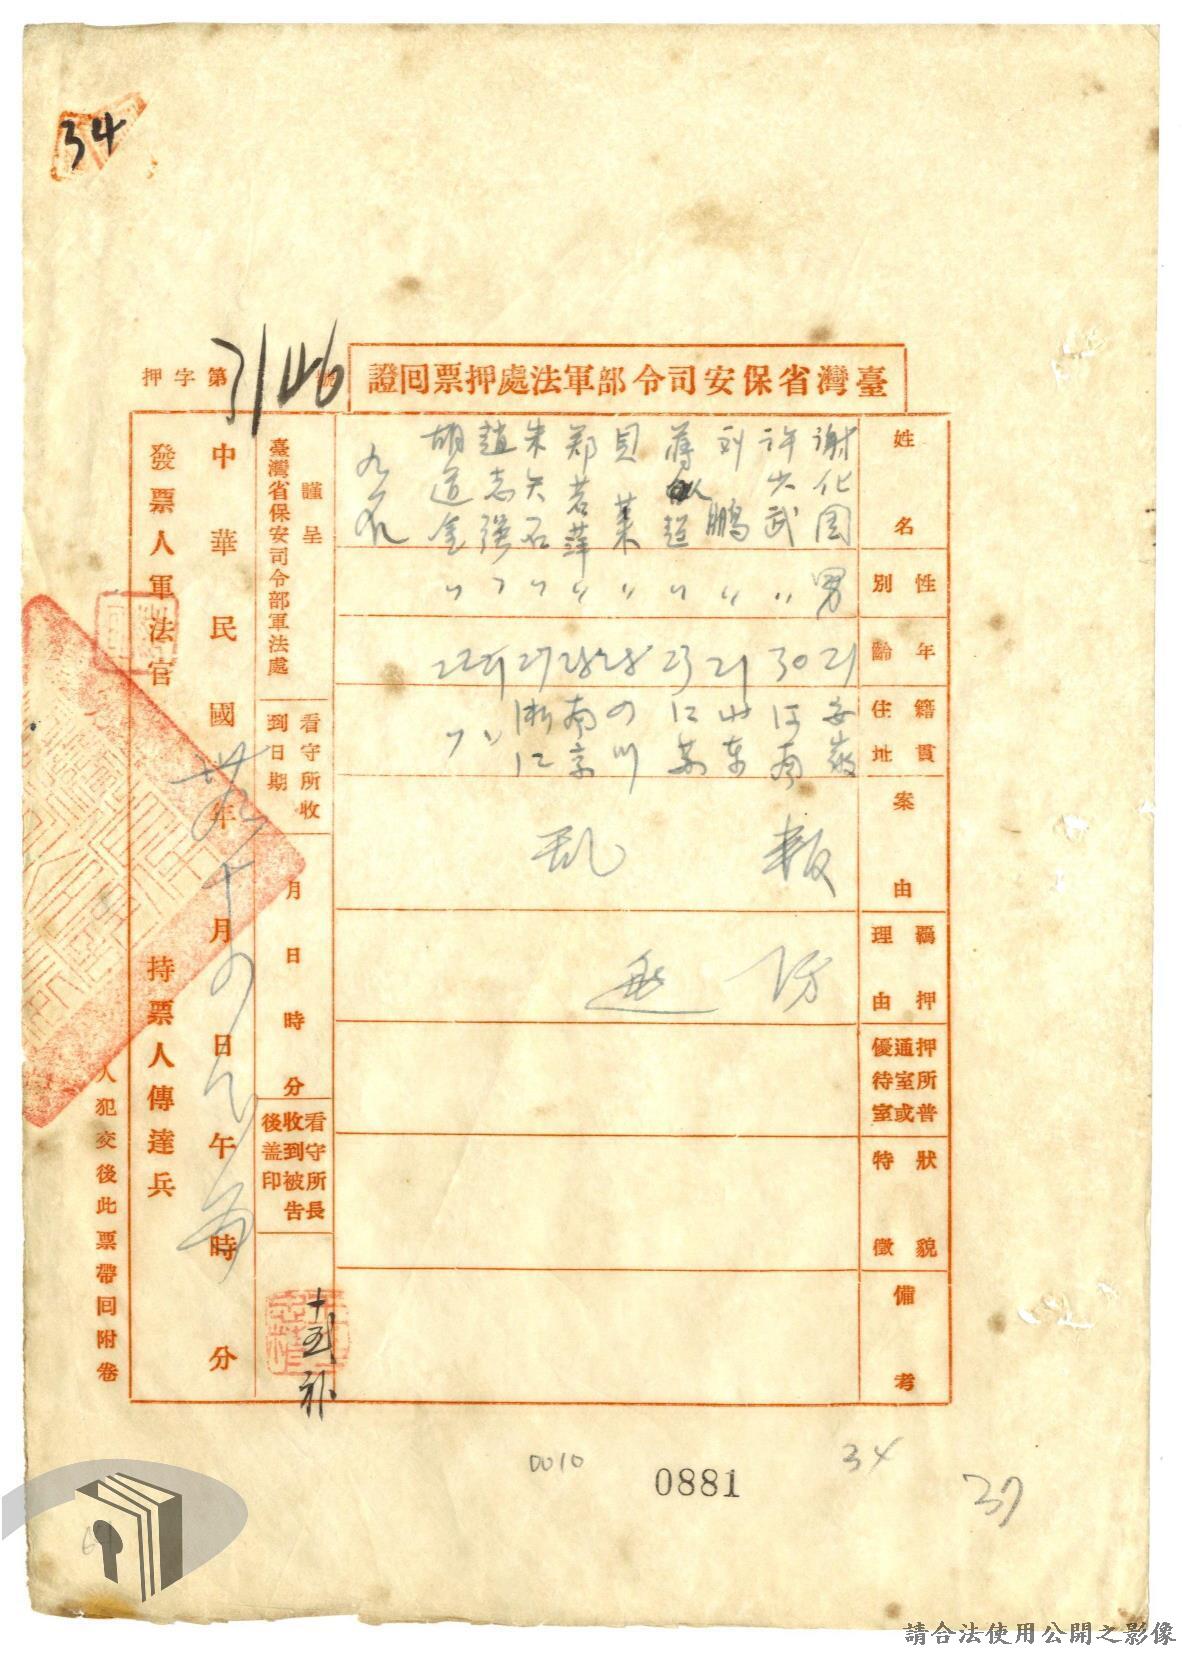 34
臺灣省保安司令部軍法處押票回證
押字第3146號
姓名
謝化國
許少武
劉鵬
蔣似超
貝萊
鄭若萍
朱矢石
趙志強
胡道全
九名
性別
男
〃
〃
〃
〃
〃
〃
〃
〃
年齡
21
30
21
23
28
28
27
21
22
籍貫住址
安徽
河南
山東
江蘇
四川
南京
浙江
〃
〃
案由
叛乱
羈押理由
防逃
押所普通室或優待室
狀貌特徵
備考
謹呈
臺灣省保安司令部軍法處
看守所收到日期
月日時分
看守所長收到被告後盖印
中華民國卅九年十月四日午時分
發票人軍法官
持票人傳達兵
人犯交後此票帶回附卷
0010
0881
34
37
請合法使用公開之影像